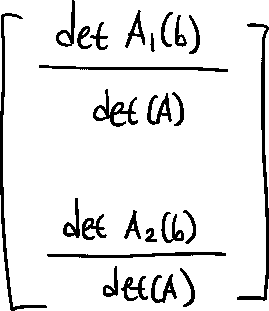 det A₁(b)
det (A)
det A₂(b)
det(A)